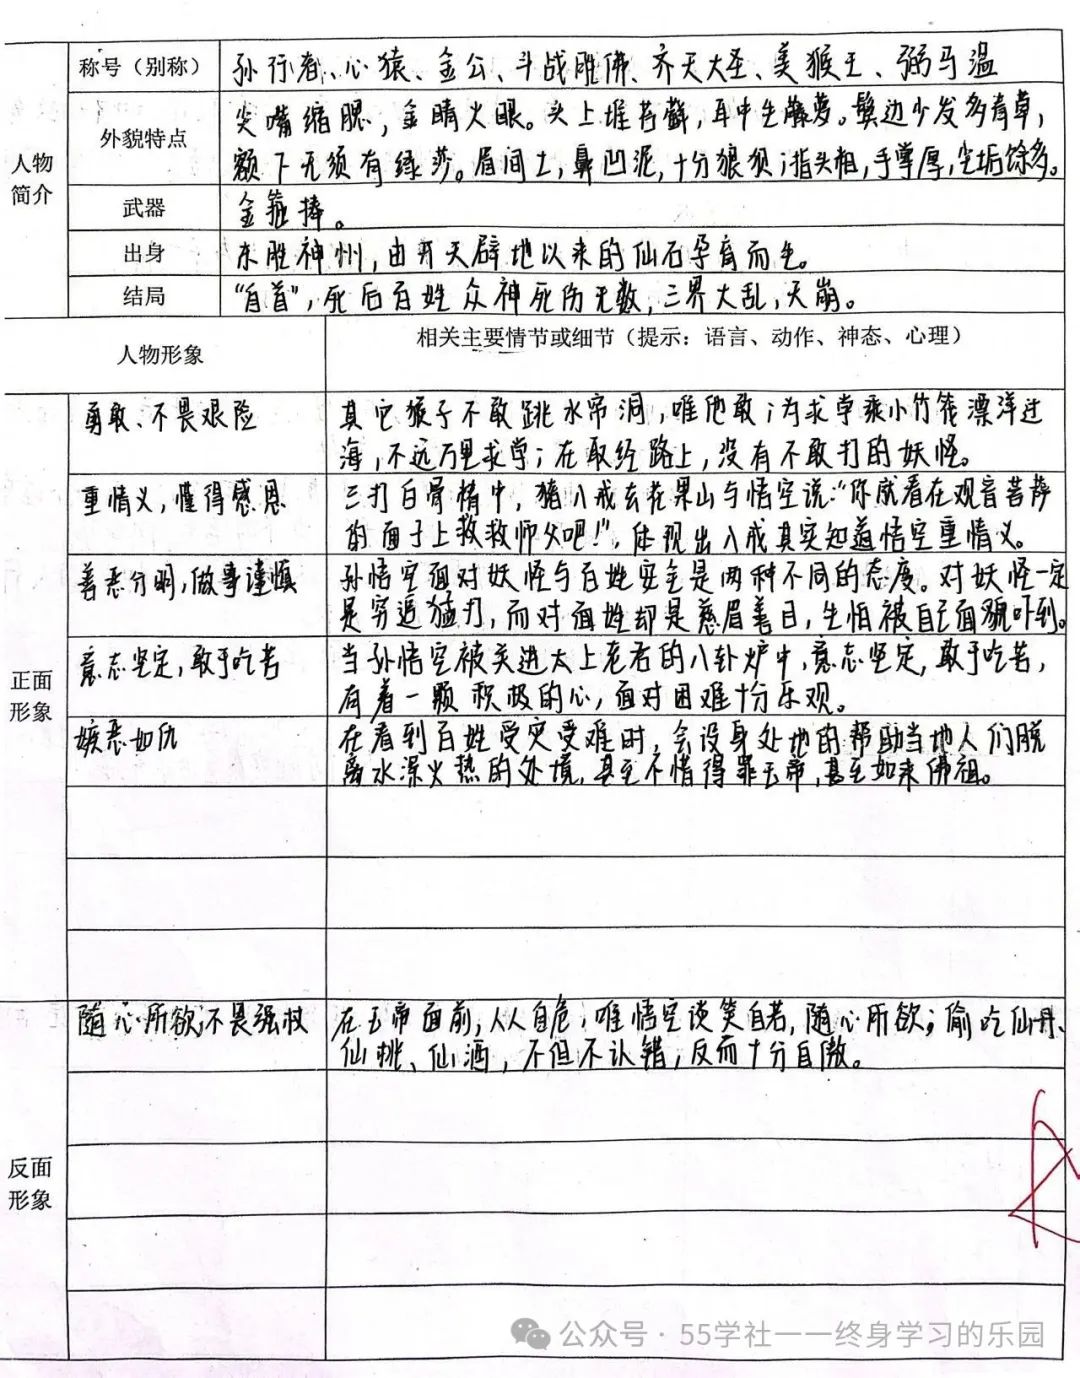 人物简介
称号（别称）
孙行者、心猿、金公、斗战胜佛、齐天大圣、美猴王、弼马温
外貌特点
尖嘴缩腮，金睛火眼。头上堆苔藓，耳中生藤萝。鬓边少发多青草，
额下无须有绿莎。眉间土，鼻凹泥，十分狼狈；指头粗，手掌厚，尘垢馀多。
武器
金箍捧。
出身
东胜神州，由开天辟地以来的仙石孕育而生。
结局
“自首”，死后百姓众神死伤无数，三界大乱，天崩。
人物形象
相关主要情节或细节（提示：语言、动作、神态、心理）
正面形象
勇敢、不畏艰险
其它猴子不敢跳水帘洞，唯他敢；为求学乘小竹筏漂洋过
海，不远万里求学；在取经路上，没有不敢打的妖怪。
重情义，懂得感恩
三打白骨精中，猪八戒去花果山与悟空说：“你就看在观音菩萨
的面子上救救师父吧！”，体现出八戒其实知道悟空重情义。
善恶分明，做事谨慎
孙悟空面对妖怪与百姓安全是两种不同的态度。对妖怪一定
是穷追猛打，而对面姓却是慈眉善目，生怕被自己面貌吓到。
意志坚定，敢于吃苦
当孙悟空被关进太上老君的八卦炉中，意志坚定，敢于吃苦，
有着一颗积极的心，面对困难十分乐观。
嫉恶如仇
在看到百姓受灾受难时，会设身处地的帮助当地人们脱
离水深火热的处境，甚至不惜得罪玉帝，甚至如来佛祖。
反面形象
随心所欲，不畏强权
在玉帝面前，人人自危，唯悟空谈笑自若，随心所欲；偷吃仙丹、
仙桃、仙酒，不但不认错，反而十分自傲。
公众号·55学社——终身学习的乐园